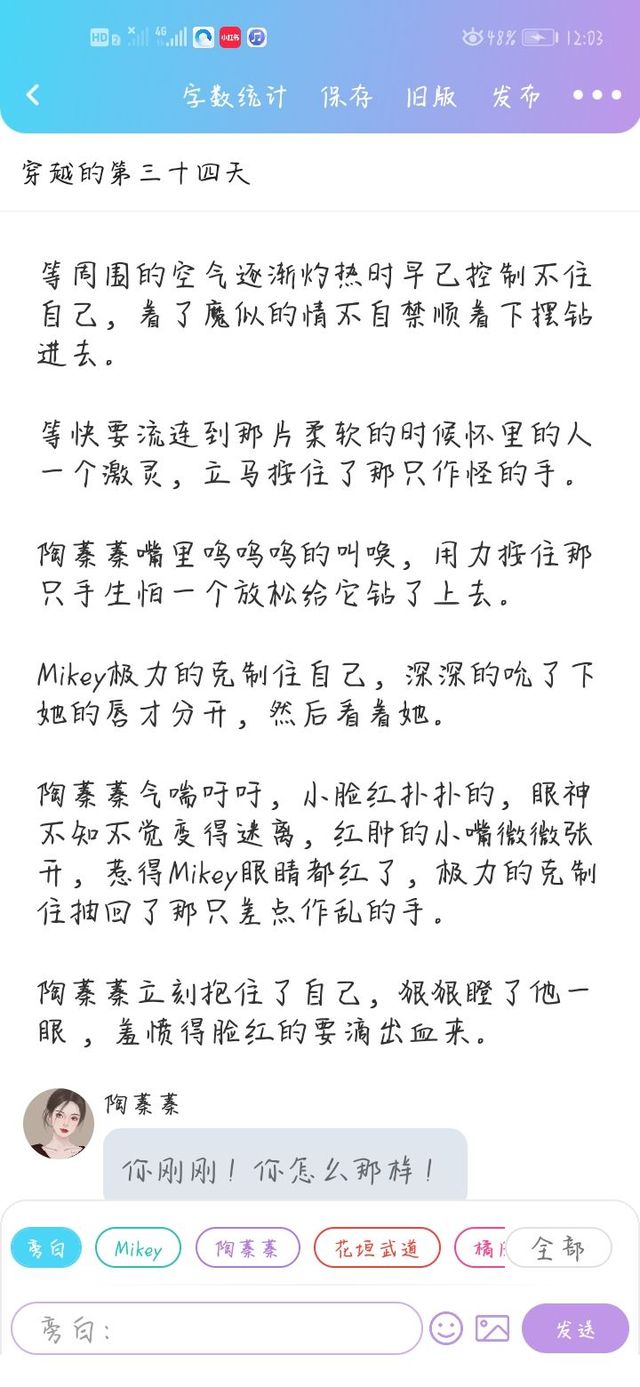 HD 2 4G 小红书 48% 12:03
字数统计 保存 旧版 发布
穿越的第三十四天
等周围的空气逐渐灼热时早已控制不住
自己，着了魔似的情不自禁顺着下摆钻
进去。
等快要流连到那片柔软的时候怀里的人
一个激灵，立马按住了那只作怪的手。
陶蓁蓁嘴里呜呜呜的叫唤，用力按住那
只手生怕一个放松给它钻了上去。
Mikey极力的克制住自己，深深的吮了下
她的唇才分开，然后看着她。
陶蓁蓁气喘吁吁，小脸红扑扑的，眼神
不知不觉变得迷离，红肿的小嘴微微张
开，惹得Mikey眼睛都红了，极力的克制
住抽回了那只差点作乱的手。
陶蓁蓁立刻抱住了自己，狠狠瞪了他一
眼，羞愤得脸红的要滴出血来。
陶蓁蓁
你刚刚！你怎么那样！
旁白 Mikey 陶蓁蓁 花垣武道 橘 全部
旁白： 发送